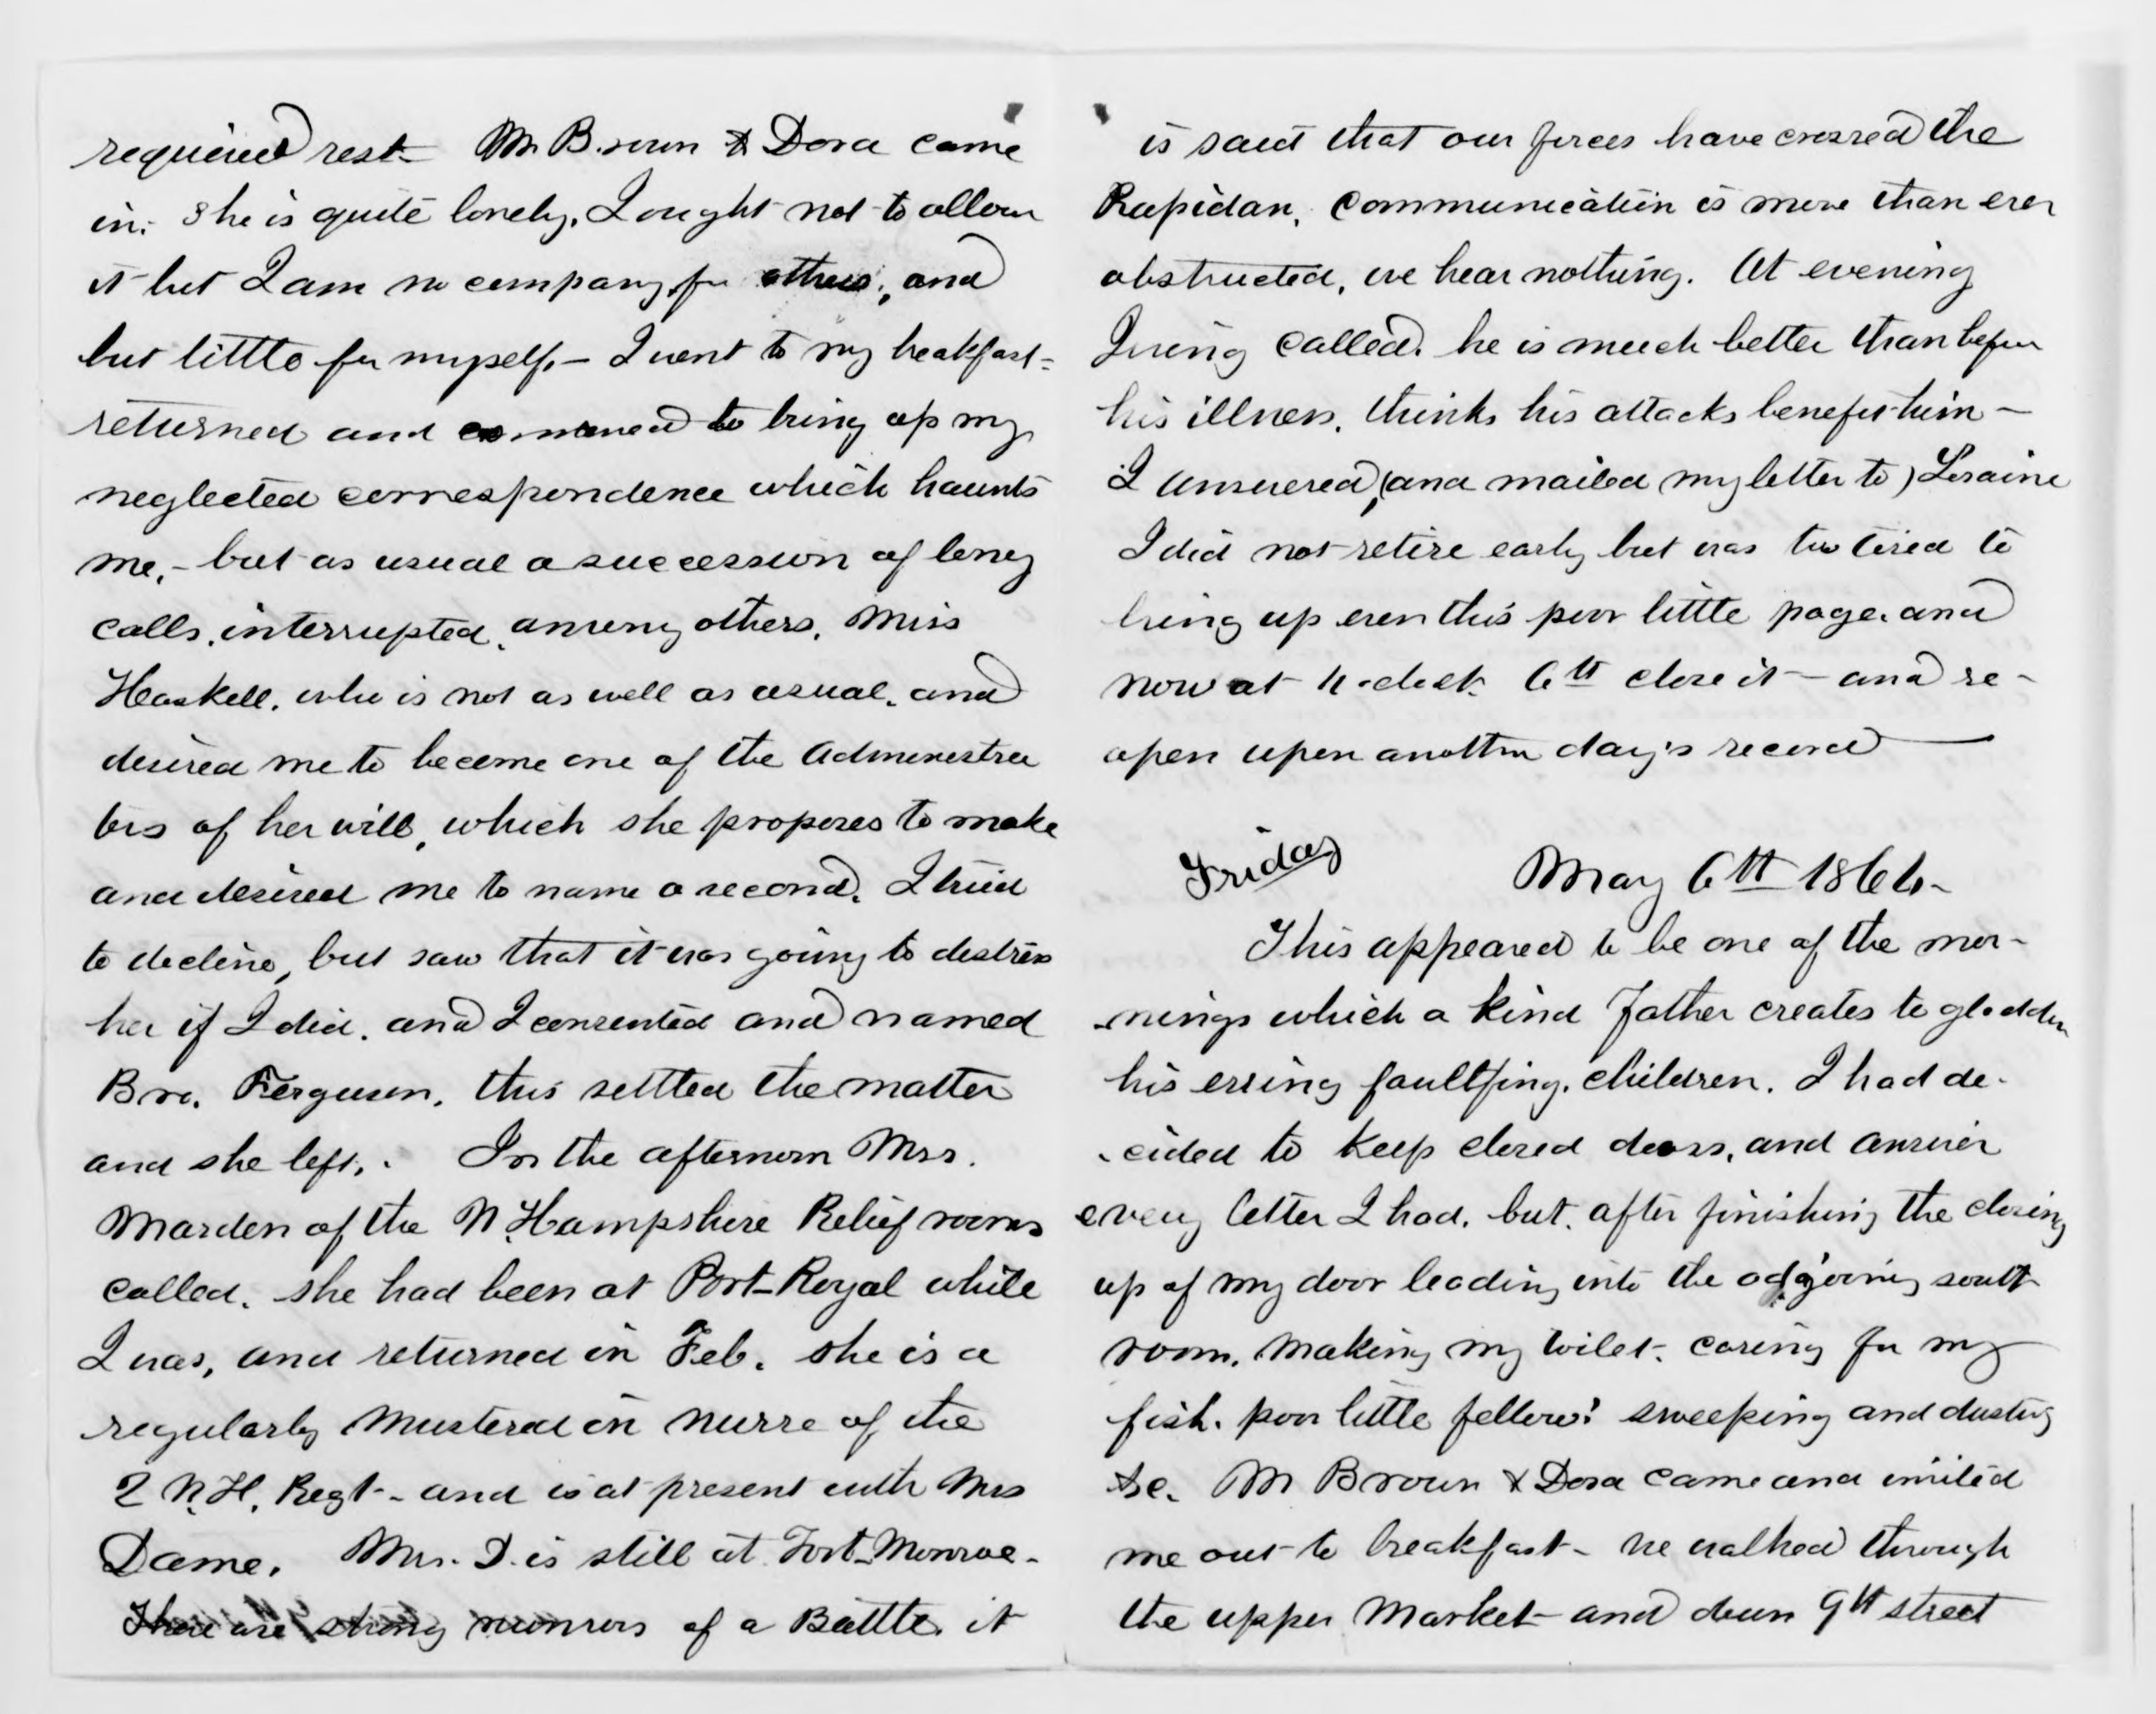 required rest – Mr Brown & Dora came
in. She is quite lonely, I ought not to allow
it but I am no company for others, and
but little for myself. – I went to my breakfast –
returned and commenced to bring up my
neglected correspondence which haunts
me, – but as usual a succession of long
calls, interrupted, among others, Miss
Haskell, who is not as well as usual, and
desired me to become one of the Administra
tors of her will, which she proposes to make
and desired me to name a second. I tried
to decline, but saw that it was going to distress
her if I did, and I consented and named
Bro. Ferguson, this settled the matter
and she left. In the afternoon Mrs.
Marden of the N. Hampshire Relief rooms
called. She had been at Port-Royal while
I was, and returned in Feb. She is a
regularly mustered in nurse of the
2 N.H. Regt – and is at present with Mrs
Dame. Mrs. D. is still at Fort-Monroe –
There are strong rumors of a Battle. it
is said that our forces have crossed the
Rapidan, communication is more than ever
obstructed, we hear nothing. At evening
Irving called, he is much better than before
his illness, thinks his attacks benefit him –
I answered, (and mailed my letter to) Loraine
I did not retire early but was too tired to
bring up even this poor little page, and
now at 11 oclock 6th close it – and re –
open upon another day's record —
Friday May 6th 1864 –
This appeared to be one of the mor –
– nings which a kind Father creates to gladden
his erring faultfing, children. I had de –
– cided to keep closed doors, and answer
every letter I had, but, after finishing the closing
up of my door leading into the adjoining south
room, making my toilet, caring for my
fish, poor little fellow! sweeping and dusting
&c. Mr Brown & Dora came and invited
me out to breakfast – we walked through
the upper Market – and down 9th street